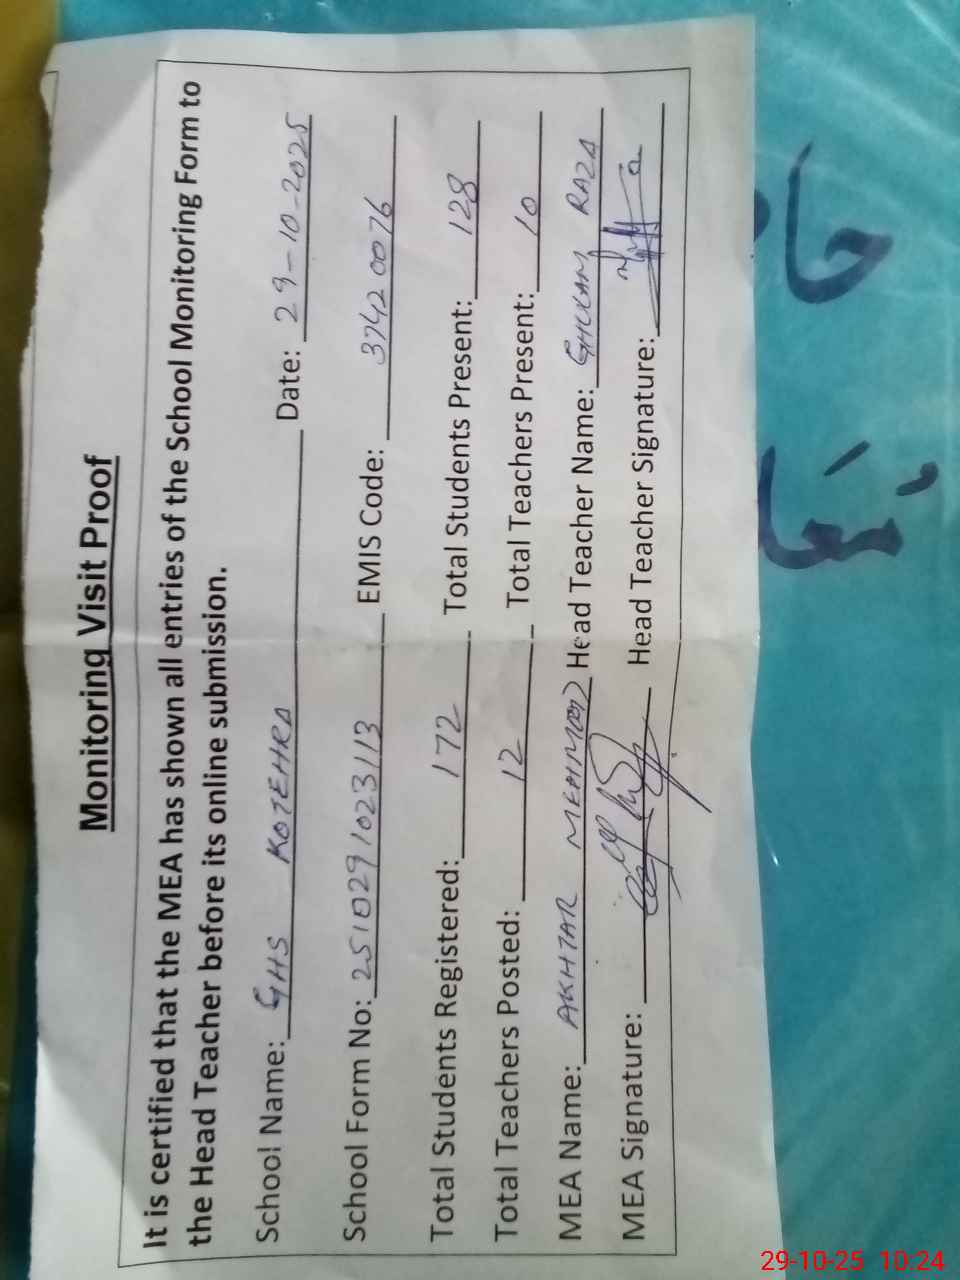 Monitoring Visit Proof
It is certified that the MEA has shown all entries of the School Monitoring Form to
the Head Teacher before its online submission.
School Name: GHS KOTEHRA Date: 29-10-2025
School Form No: 2510291023113 EMIS Code: 37420076
Total Students Registered: 172 Total Students Present: 128
Total Teachers Posted: 12 Total Teachers Present: 10
MEA Name: AKHTAR MEHMOOD Head Teacher Name: GHULAM RAZA
MEA Signature: Head Teacher Signature:
29-10-25 10:24